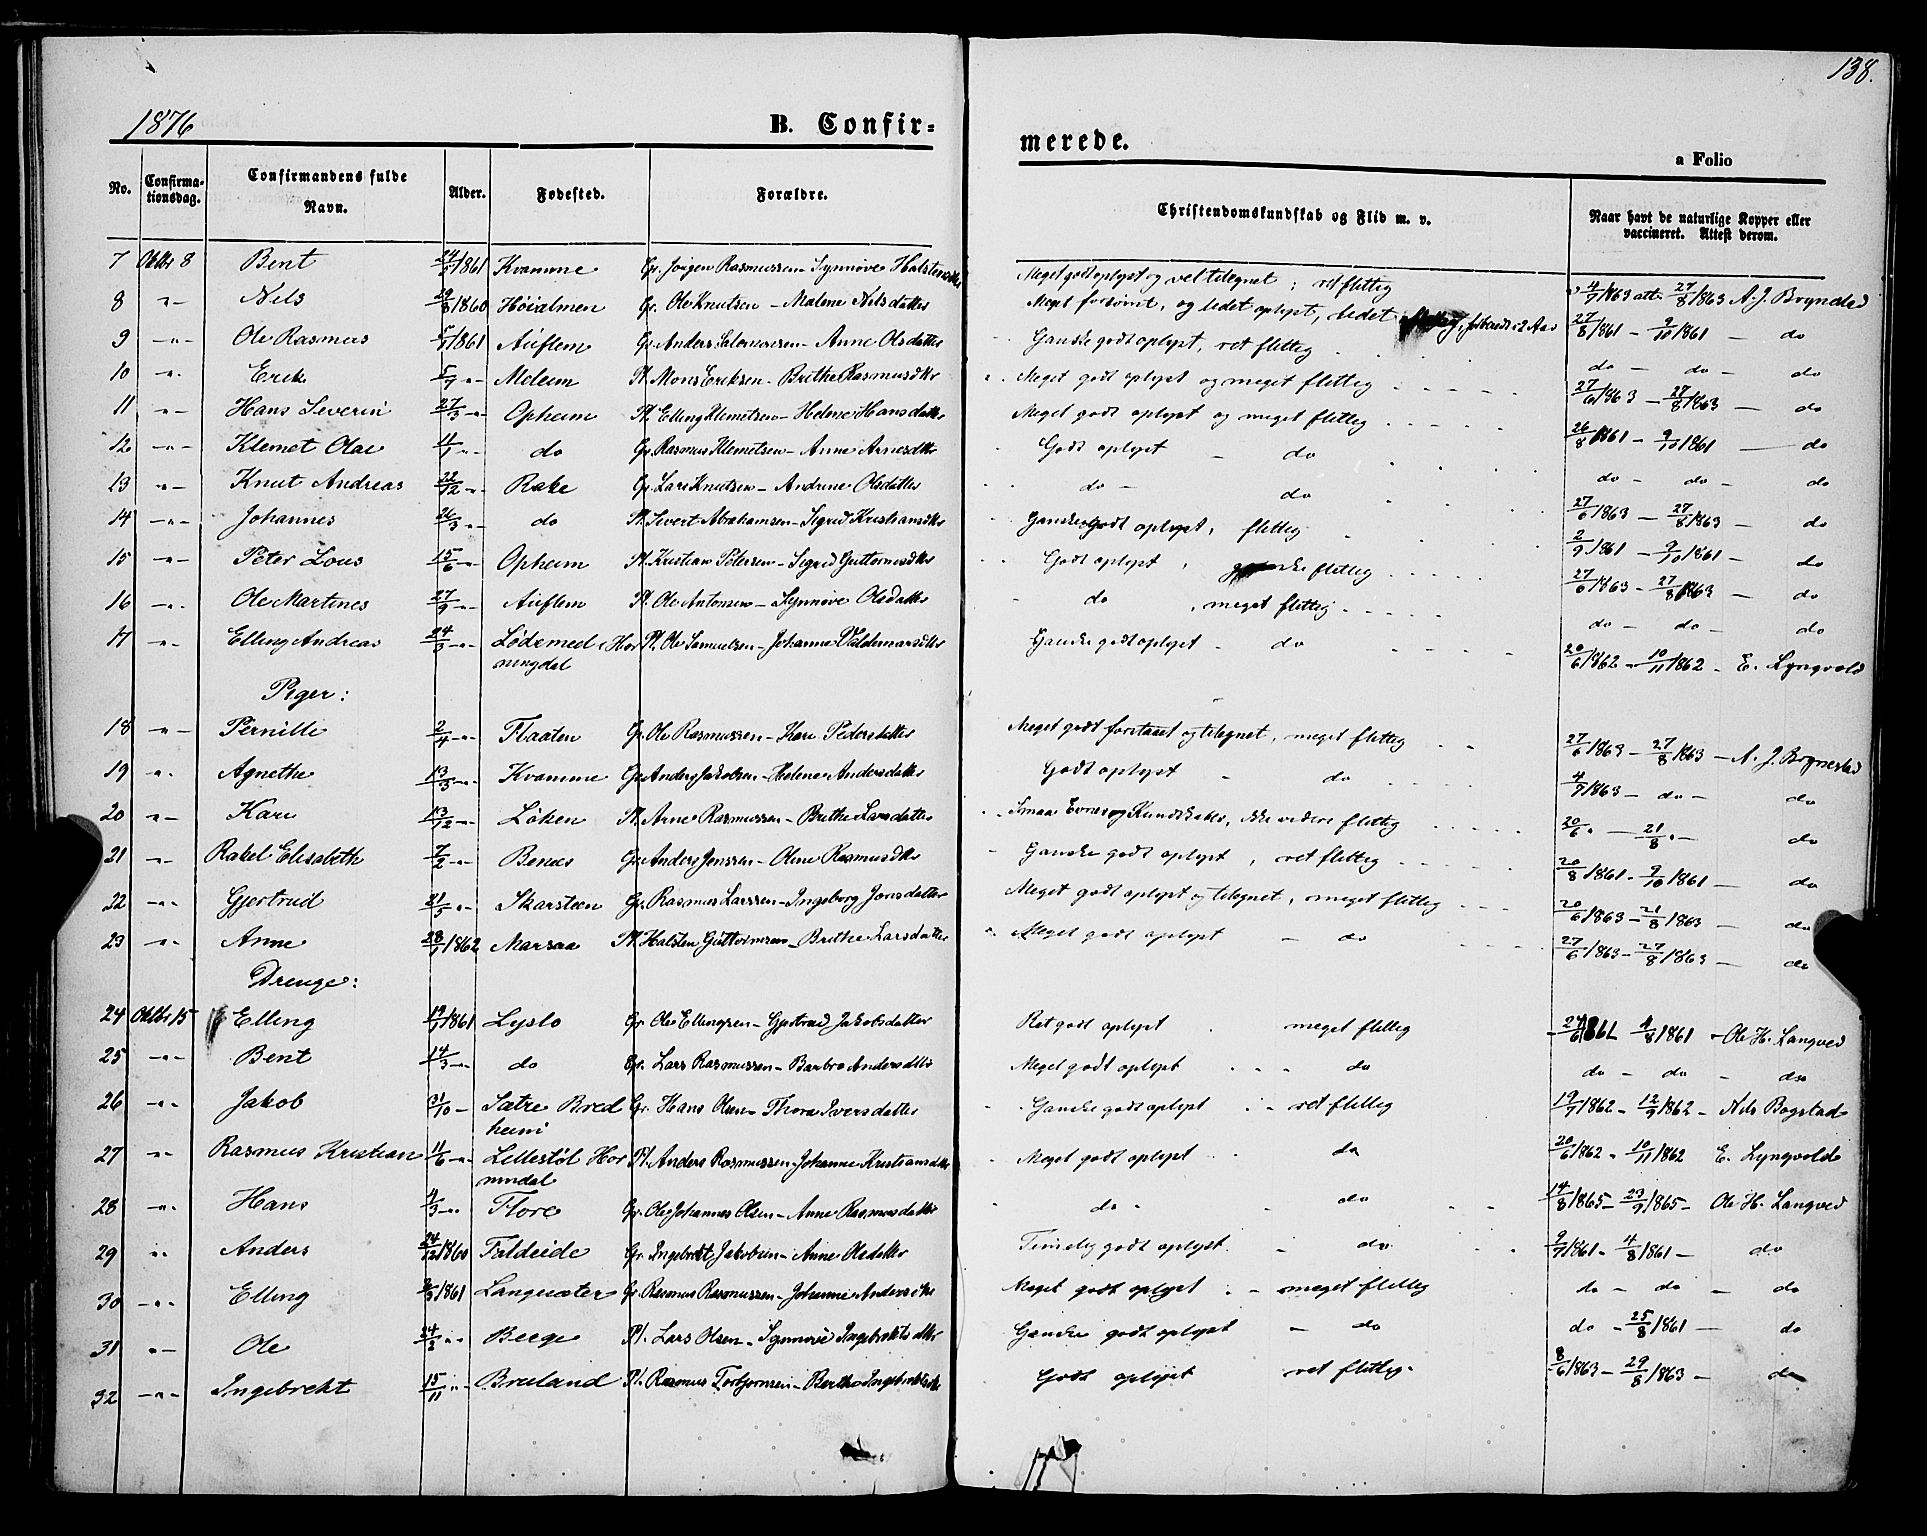 138.
1876
B. Confir=
merede.
a Folio
No.
Confirma-
tionsdag.
Confirmandens fulde
Navn.
Alder.
Fødested.
Forældre.
Christendomskundskab og Flid m. v.
Naar havt de naturlige Kopper eller
vaccineret. Attest derom.
7 Oktbr 8 Bent 24/ 1861 Kvamme Gr. Jørgen Rasmussen - Synnøve Halstensdtr Meget godt oplyst og vel tilegnet, ret flittig 4/7 1863 att. 27/8 1863 A. J. Brynestad
8 -"- Nels 29/8 1860 Høialmen Gr. Ole Knutsen - Malene Nilsdatter Meget forsømt, og ledet oplyst, ledet 27/8 1861 - 9/10 1861 - do
9 -"- Ole Rasmus 5/ 1861 Auflem Gr. Anders Salomonsen - Anne Olsdatter Ganske godt oplyst, ret flittig do - do - do
10 -"- Erik 5/7 -"- Melem Pl. Mons Eriksen - Brithe Rasmusdtr Meget godt oplyst og meget flittig 27/6 1863 - 27/8 1863 - do
11 -"- Hans Severin 27/3 -"- Opheim Pl. Elling Klemetsen - Helene Hansdatter Meget godt oplyst og meget flittig 26/8 1861 - 9/10 1861 - do
12 -"- Klemet Olai 4/7 -"- do Gr. Rasmus Klemetsen - Anne Arnesdtr Godt oplyst - do do - do - do
13 -"- Knut Andreas 22/12 -"- Rake Gr. Lars Knutsen - Andrine Olsdatter do - do 27/6 1863 - 27/8 1863 - do
14 -"- Johannes 26/3 -"- do Pl. Sivert Abrahamsen - Sigrid Kristiansdtr Ganske godt oplyst, flittig 2/9 1861 - 9/10 1861 - do
15 -"- Peter Lous 15/6 -"- Opheim Pl. Kristian Petersen - Sigrid Guttormsdtr Godt oplyst, ganske flittig 27/6 1863 - 27/8 1863 - do
16 -"- Ole Martines 27/9 -"- Auflem Pl. Ole Antonsen - Synnøve Olsdatter do, meget flittig do - do - do
17 -"- Elling Andreas 24/3 -"- Lødemed i Hor Pl. Ole Samuelsen - Johanne Valdemarsdtr Ganske godt oplyst - do 20/6 1862 - 10/11 1862 - E. Lyngvold
ningdal
Piger:
18 -"- Pernille 2/4 -"- Flaaten Gr. Ole Rasmussen - Kari Pedersdatter Meget godt forstaaet og tilegnet, meget flittig 27/6 1863 - 27/8 1863 - A. J. Brynestad
19 -"- Agnethe 13/3 -"- Kvamme Gr. Anders Jakobsen - Helene Andersdatter Godt oplyst - do 4/7 1863 - do - do
20 -"- Kari 13/12 -"- Løken Pl. Arne Rasmussen - Brithe Larsdatter Smaa Evner og Kundskaber, ikke videre flittig 20/6 " - 21/8 " - do
21 -"- Rakel Elisabeth 7/2 -"- Benæs Gr. Anders Jenssen - Oline Rasmusdtr Ganske godt oplyst, ret flittig 20/8 1861 - 9/10 1861 - do
22 -"- Gjertrud 21/5 -"- Skarsteen Gr. Rasmus Larssen - Ingeborg Jonsdatter Meget godt oplyst og tilegnet, meget flittig 20/6 1863 - 21/8 1863 - do
23 -"- Anne 28/ 1862 Marsaa Pl. Halsten Guttormsen - Brithe Larsdatter Meget godt oplyst - do 27/6 1863 - 27/8 1863 - do
Drenge:
24 Oktbr 15 Elling 19/ 1861 Lyslo Gr. Ole Ellingsen - Gjertrud Jakobsdatter Ret godt oplyst meget flittig 24/6 1861 4/8 1861 - Ole H. Langved
25 -"- Bent 14/3 -"- do Gr. Lars Rasmussen - Barbro Andersdtr Meget godt oplyst do do - do - do
26 -"- Jakob 31/10 - Sætre Bred Gr. Hans Olsen - Thora Iversdatter Ganske godt oplyst - ret flittig 19/7 1862 - 12/9 1862 - Nils Bogstad
heim
27 -"- Rasmus Kristian 11/6 -"- Lillestøl Hor Pl. Anders Rasmussen - Johanne Kristiansdtr Meget godt oplyst do 20/6 1862 - 10/11 1862 E. Lyngvold
nindal
28 -"- Hans 4/3 -"- Flore Gr. Ole Johannes Olsen - Anne Rasmusdatter do - do 14/8 1865 - 23/9 1865 - Ole H. Langved
29 -"- Anders 24/12 1860 Faldeide Gr. Ingebrikt Jakobsen - Anne Olsdatter Timelig godt oplyst - do 9/7 1861 - 4/8 1861 - do
30 -"- Elling 2/3 1861 Langsæter Gr. Rasmus Rasmussen - Johanne Andersdtr Meget godt oplyst - meget flittig do - do - do
31 -"- Ole 24/2 -"- Berge Pl. Lars Olsen - Synnøve Ingebriktsdtr Ganske godt oplyst - do do - 25/8 1861 - do
32 -"- Ingebrekt 15/11 -"- Breland Pl. Rasmus Torbjørnsen - Berthe Godt oplyst ret flittig 8/6 1863 - 29/8 1863 - do